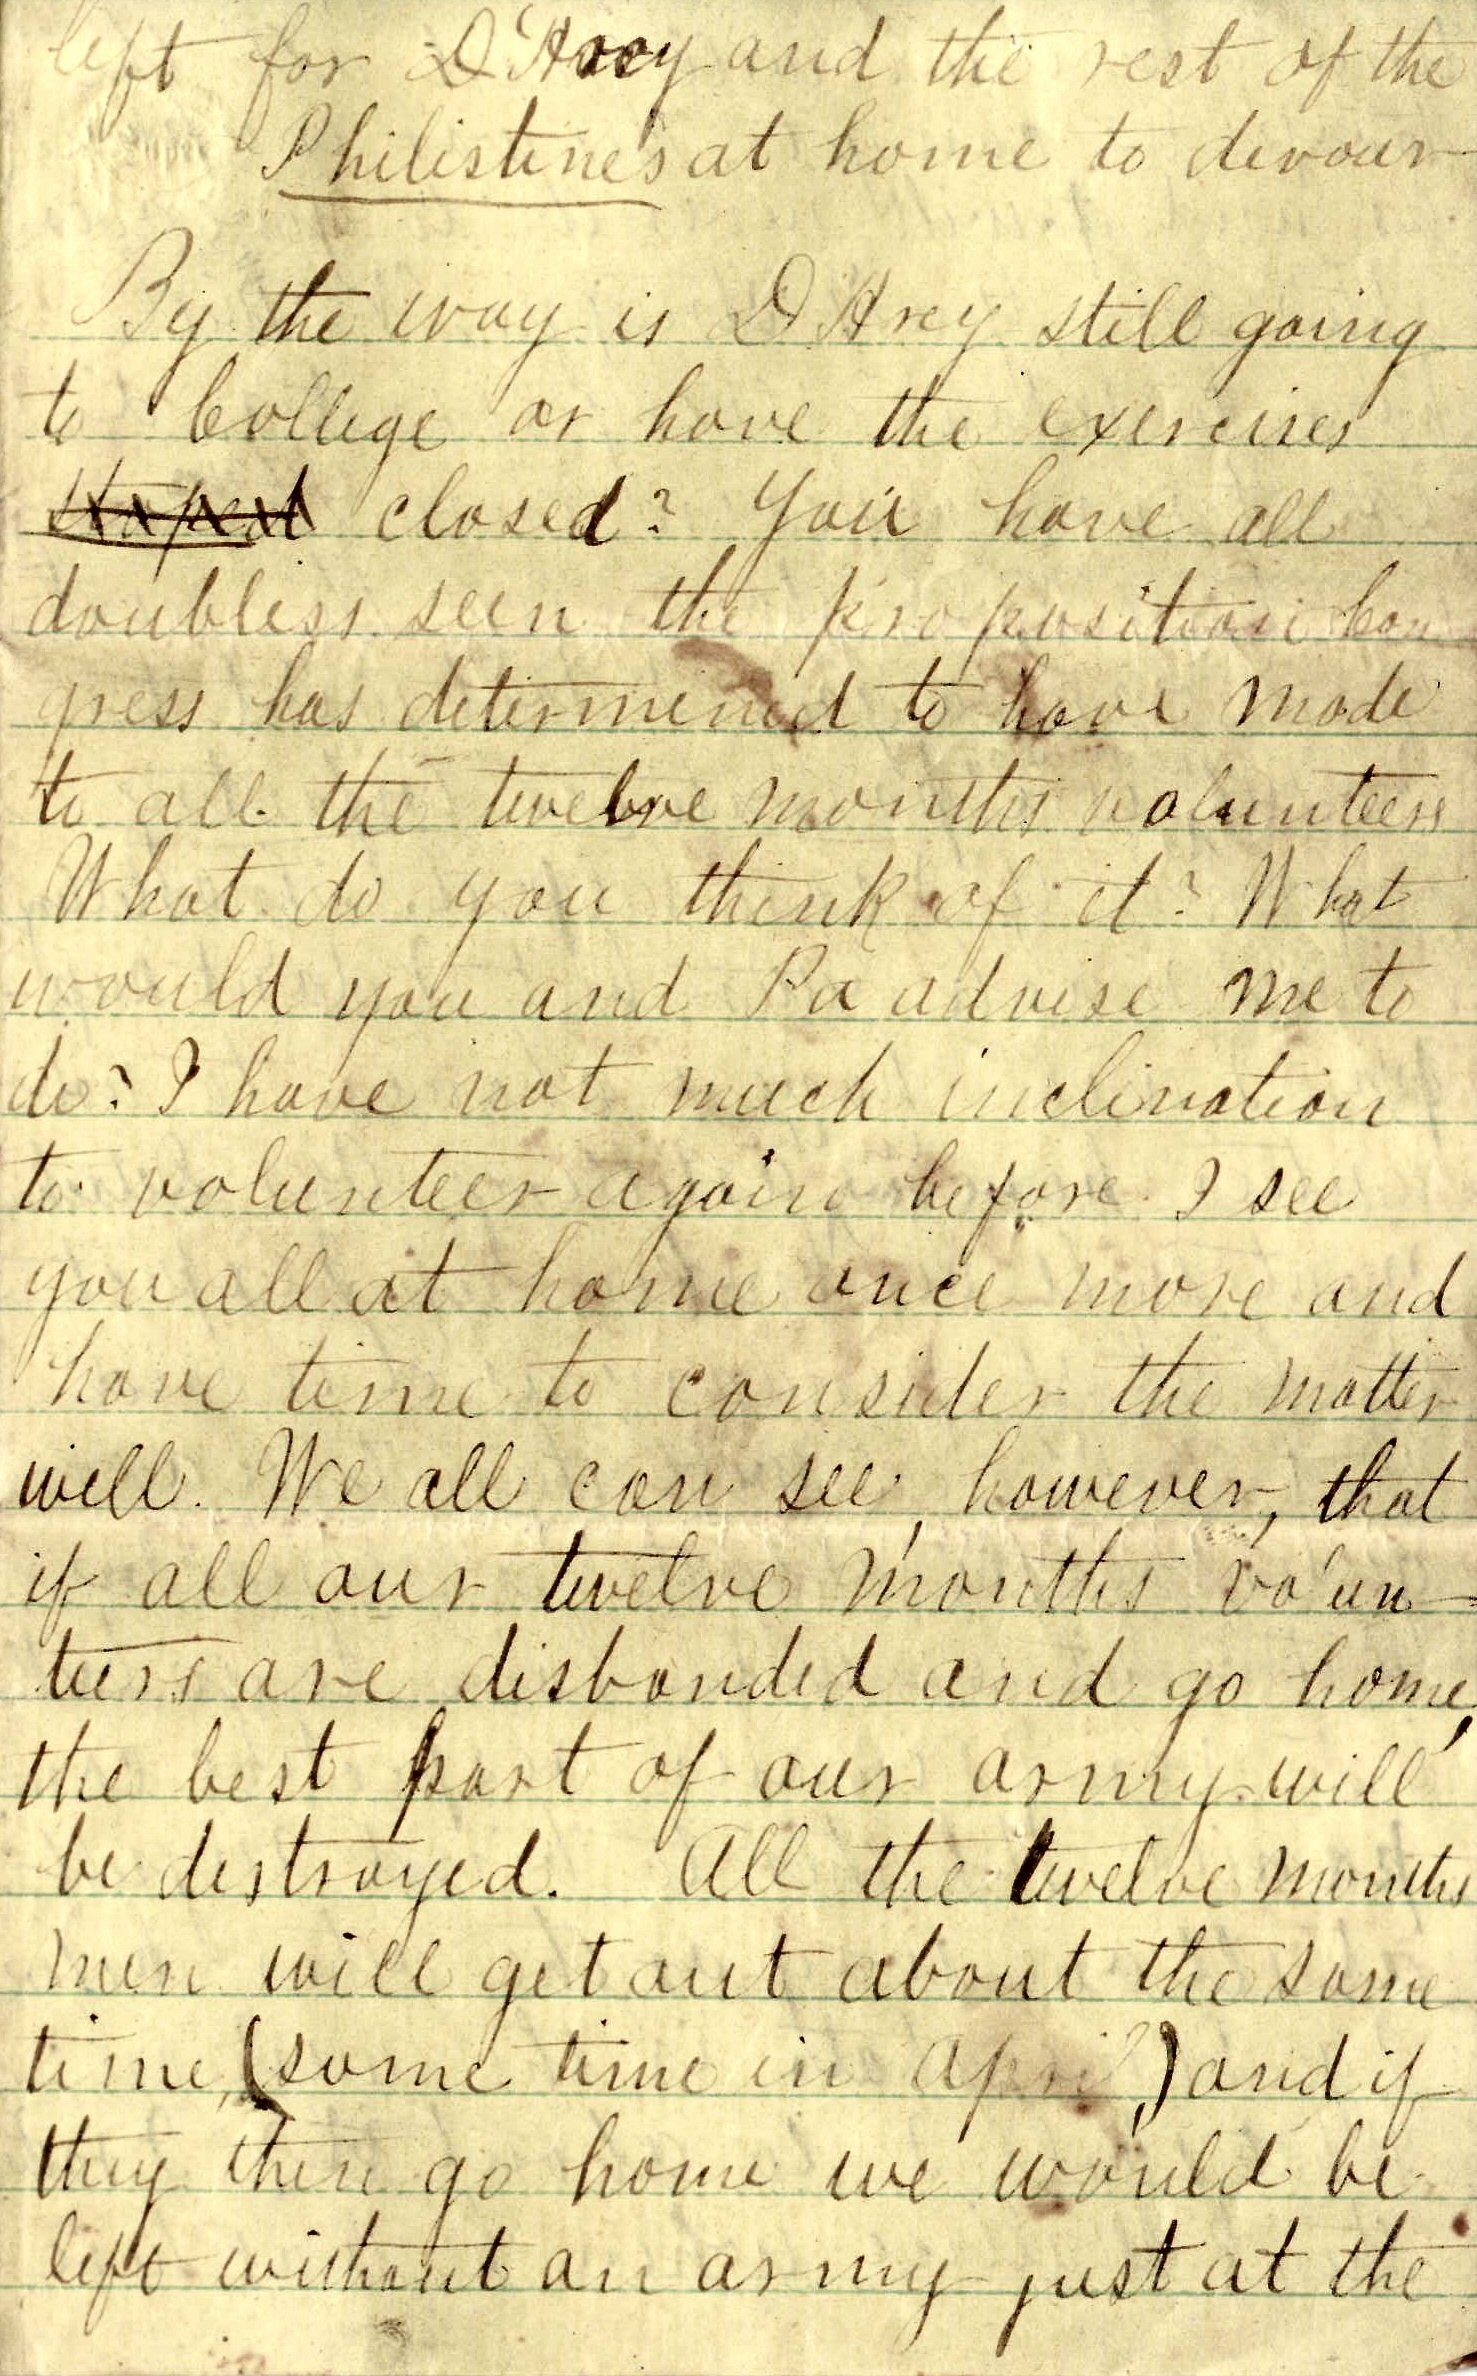 left for D'Arcy and the rest of the
Philistines at home to devour
By the way is D'Arcy still going
to College or have the exercises
closed? You have all
doubless seen the proposition Con
gress has determined to have made
to all the twelve months volunteers
What do you think of it? What
would you and Pa advise me to
do? I have not much inclination
to volunteer again before I see
you all at home once more and
have time to consider the matter
well. We all can see, however, that
if all our twelve months volun-
teers are disbanded and go home,
the best part of our army will
be destroyed. All the twelve months
men will get out about the same
time, (some time in April,) and if
they then go home we would be
left without an army just at the